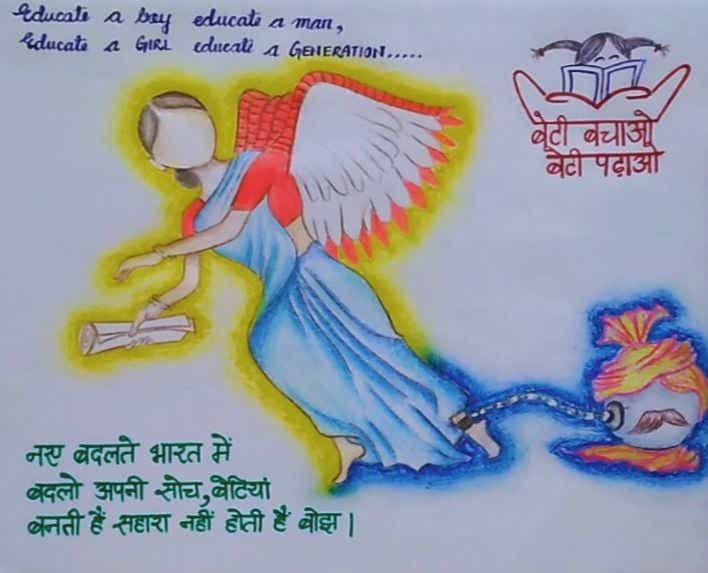 Educate a boy educate a man,
Educate a GIRL educate a GENERATION.....
बेटी बचाओ
बेटी पढ़ाओ
नए बदलते भारत में
बदलो अपनी सोच, बेटियां
बनती हैं सहारा नहीं होती हैं बोझ।